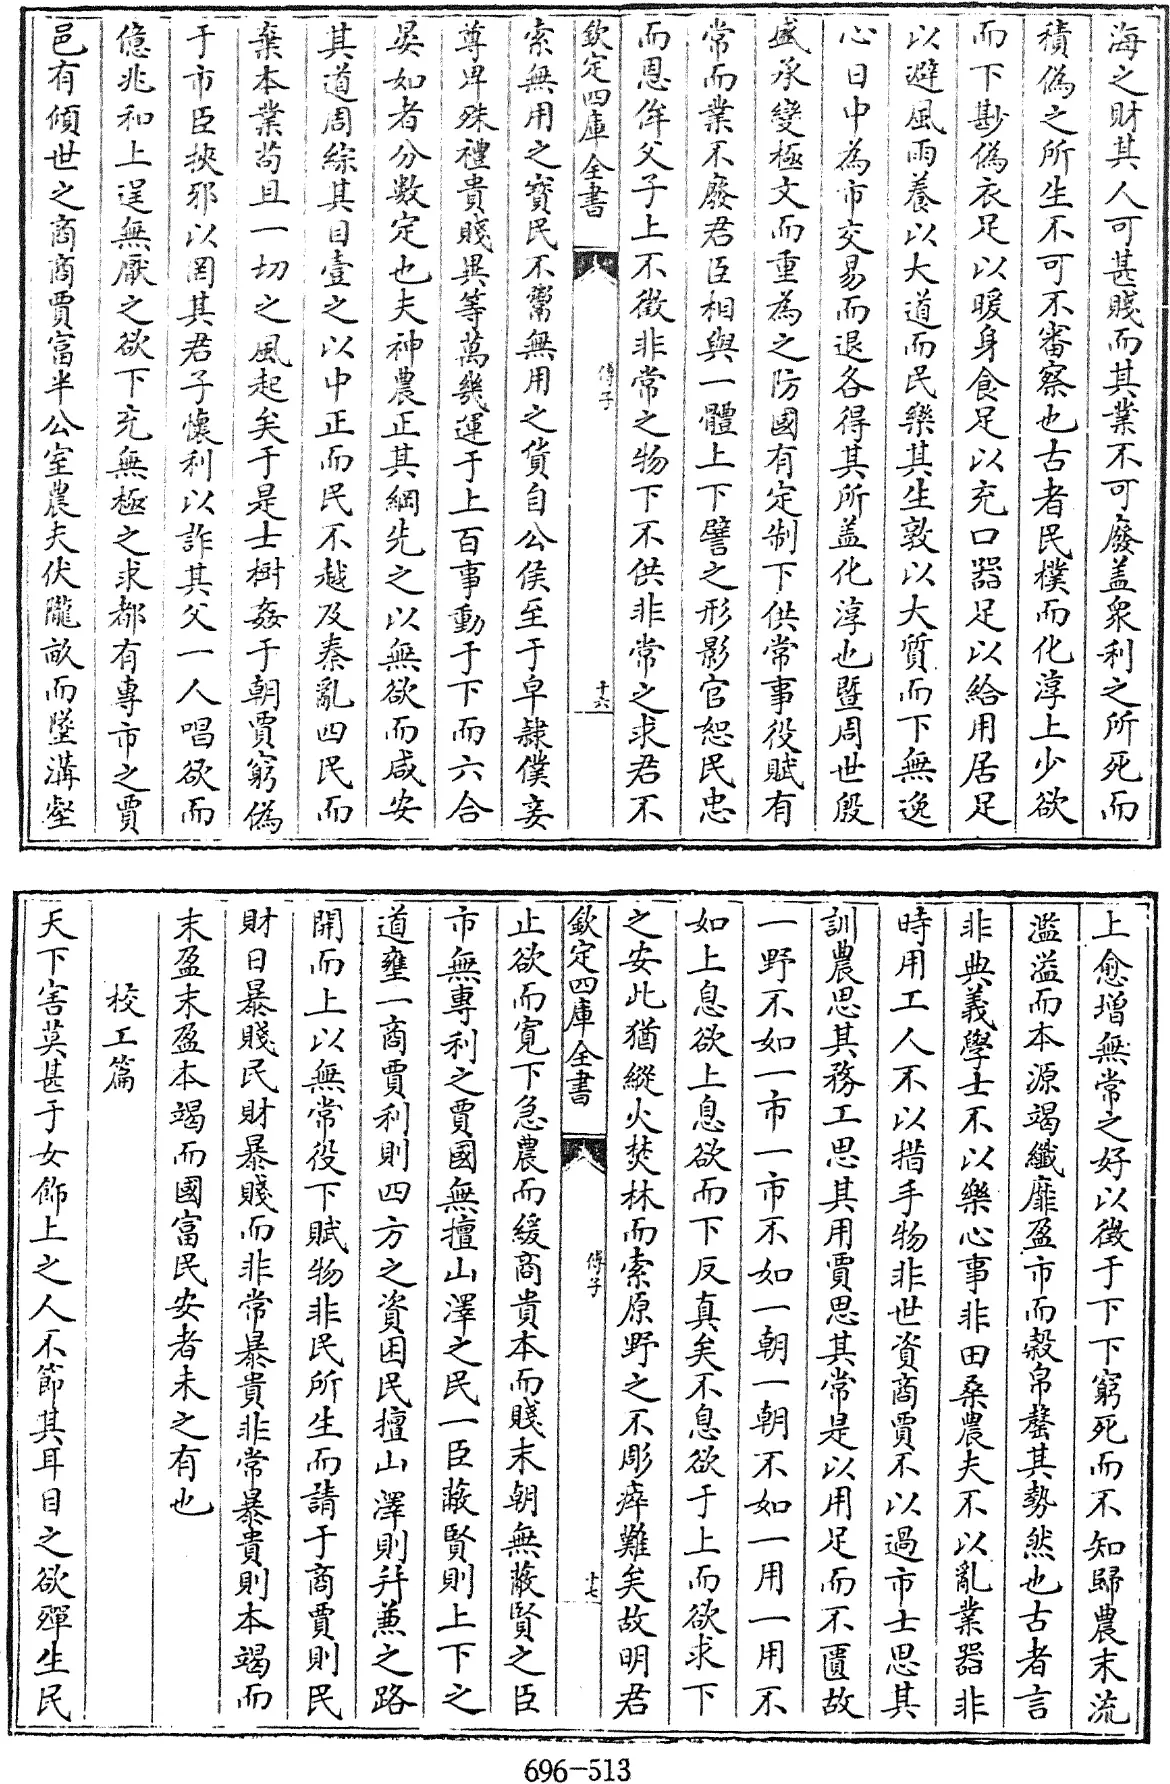 海之財其人可甚賤而其業不可廢盖衆利之所死而
積偽之所生不可不審察也古者民樸而化淳上少欲
而下尠偽衣足以暖身食足以充口器足以給用居足
以避風雨養以大道而民樂其生敦以大質而下無逸
心日中為市交易而退各得其所盖化淳也暨周世殷
盛承變極文而重為之防國有定制下供常事役賦有
常而業不廢君臣相與一體上下譬之形影官恕民忠
而恩侔父子上不徵非常之物下不供非常之求君不
欽定四庫全書
傅子
十六
索無用之寳民不鬻無用之貨自公侯至于皁隷僕妾
尊卑殊禮貴賤異等萬幾運于上百事動于下而六合
晏如者分數定也夫神農正其綱先之以無欲而咸安
其道周綜其目壹之以中正而民不越及秦亂四民而
棄本業苟且一切之風起矣于是士樹姦于朝賈窮偽
于市臣挾邪以罔其君子懷利以詐其父一人唱欲而
億兆和上逞無厭之欲下充無極之求都有專市之賈
邑有傾世之商商賈富半公室農夫伏隴畝而墜溝壑
上愈增無常之好以徵于下下窮死而不知歸農末流
濫溢而本源竭纖靡盈市而榖帛罄其勢然也古者言
非典義學士不以樂心事非田桑農夫不以亂業器非
時用工人不以措手物非世資商賈不以過市士思其
訓農思其務工思其用賈思其常是以用足而不匱故
一野不如一市一市不如一朝一朝不如一用一用不
如上息欲上息欲而下反真矣不息欲于上而欲求下
之安此猶縱火焚林而索原野之不彫瘁難矣故明君
欽定四庫全書
傅子
十七
止欲而寛下急農而緩商貴本而賤末朝無蔽賢之臣
市無專利之賈國無擅山澤之民一臣蔽賢則上下之
道壅一商賈利則四方之資困民擅山澤則并兼之路
開而上以無常役下賦物非民所生而請于商賈則民
財日暴賤民財暴賤而非常暴貴非常暴貴則本竭而
末盈末盈本竭而國富民安者未之有也
校工篇
天下害莫甚于女飾上之人不節其耳目之欲殫生民
696-513